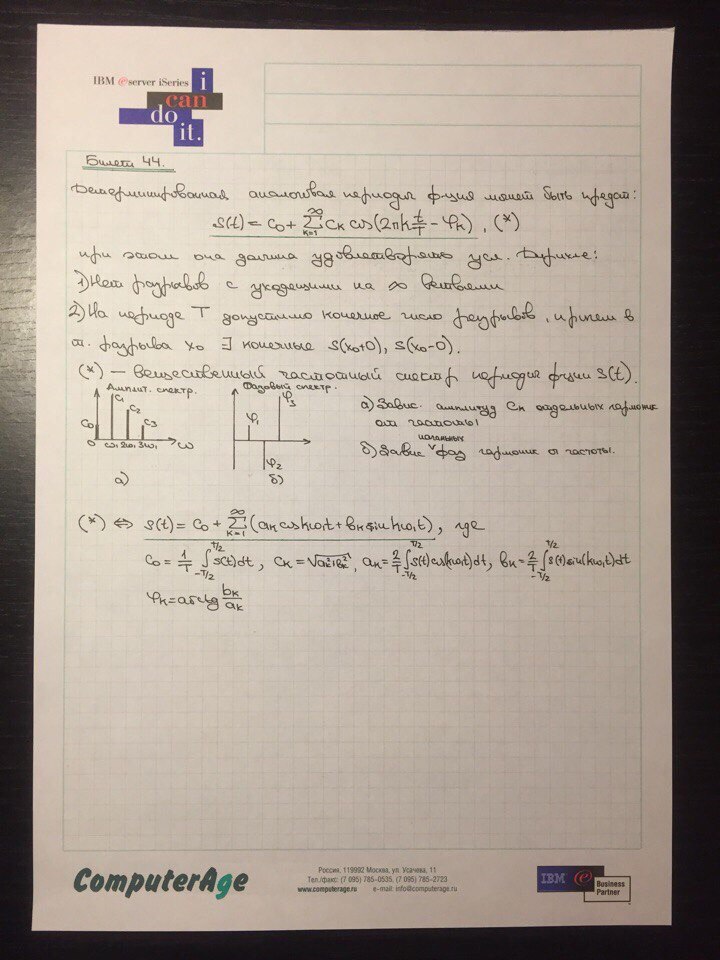 IBM eserver iSeries
i
can
do
it.
Билет 44.
Детерминированная аналоговая периодич. фция может быть предст:
s(t) = c₀ + ∑_{k=1}^{∞} cₖ cos(2πk t/T − φₖ), (*)
при этом она должна удовлетворять усл. Дирихле:
1) Нет разрывов с уходящими на ∞ ветвями
2) На периоде T допустимо конечное число разрывов, причем в
т. разрыва x₀ ∃ конечные s(x₀+0), s(x₀−0).
(*) – вещественный частотный спектр периодич фции s(t).
Амплит. спектр.
c₀ c₁ c₂ c₃
0 ω₁ 2ω₁ 3ω₁ ω
а)
Фазовый спектр.
φ₁ φ₂ φ₃
б)
а) Завис. амплитуд cₖ отдельных гармоник
от частоты
б) Завис начальных фаз гармоник от частоты.
(*) ⇔ s(t) = c₀ + ∑_{k=1}^{∞} (aₖ cos kω₁t + bₖ sin kω₁t), где
c₀ = 1/T ∫_{-T/2}^{T/2} s(t)dt, cₖ = √(aₖ²+bₖ²), aₖ = 2/T ∫_{-T/2}^{T/2} s(t)cos(kω₁t)dt, bₖ = 2/T ∫_{-T/2}^{T/2} s(t)sin(kω₁t)dt
φₖ = arctg bₖ/aₖ
ComputerAge
Россия, 119992 Москва, ул. Усачева, 11
Тел./факс: (7 095) 785–0535, (7 095) 785–2723
www.computerage.ru e-mail: info@computerage.ru
IBM e Business
Partner